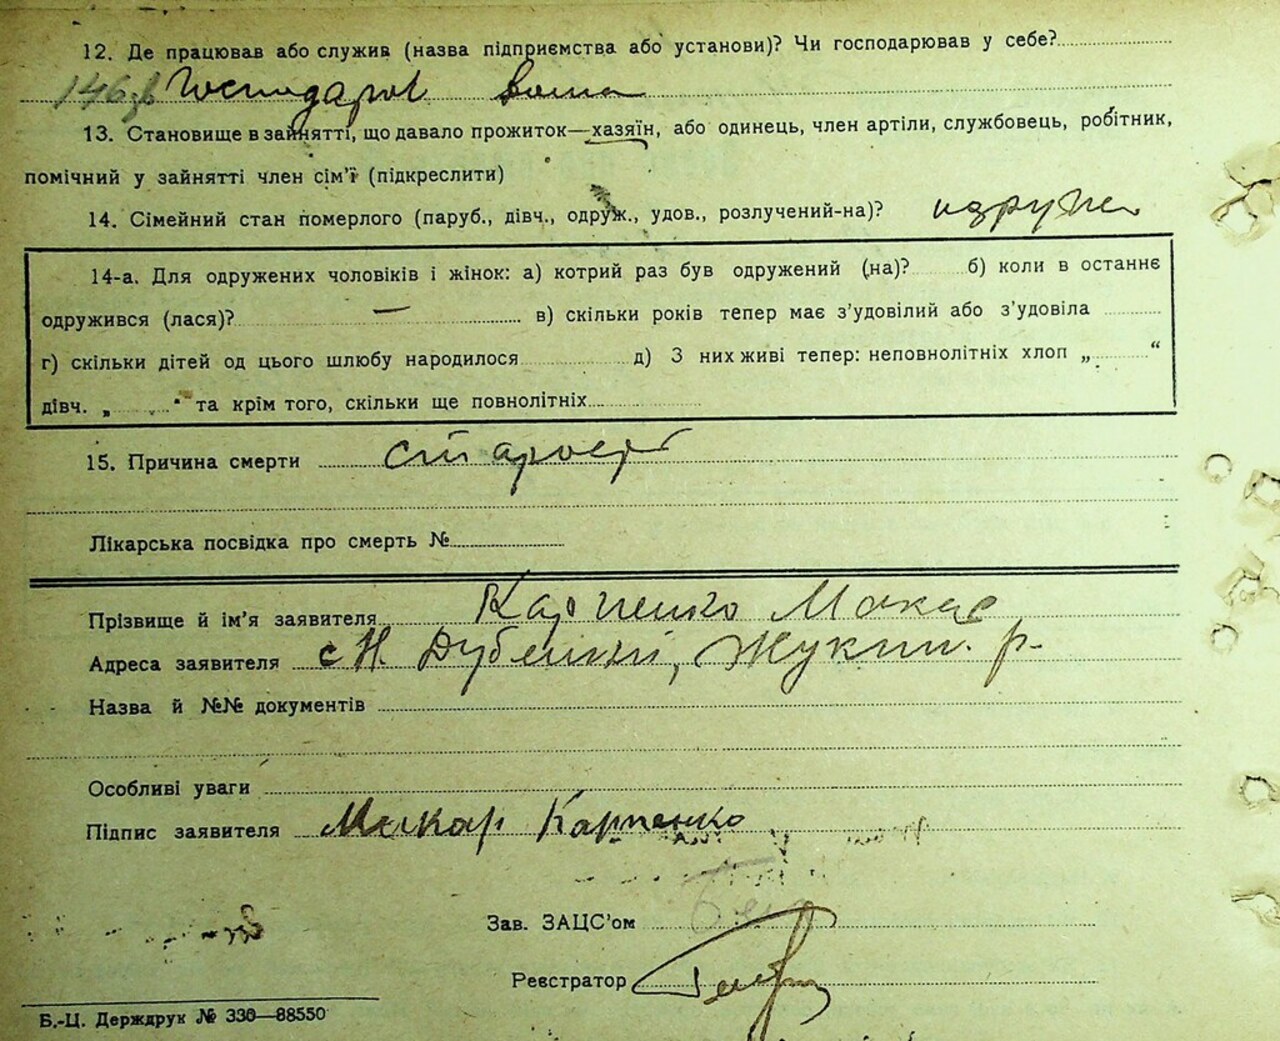 12. Де працював або служив (назва підприємства або установи)? Чи господарював у себе?
Господарюв вома
13. Становище в зайнятті, що давало прожиток—хазяїн, або одинець, член артіли, службовець, робітник,
помічний у зайнятті член сім'ї (підкреслити)
14. Сімейний стан померлого (паруб., дівч., одруж., удов., розлучений-на)?
14-а. Для одружених чоловіків і жінок: а) котрий раз був одружений (на)? б) коли в останнє
одружився (лася)? — в) скільки років тепер має з'удовілий або з'удовіла
г) скільки дітей од цього шлюбу народилося д) З них живі тепер: неповнолітніх хлоп „ “
дівч. „ “ та крім того, скільки ще повнолітніх
15. Причина смерти старость
Лікарська посвідка про смерть №
Прізвище й ім'я заявителя Карпенко Макар
Адреса заявителя с Н. Дубешні, Жукин. р-
Назва й №№ документів
Особливі уваги
Підпис заявителя Макар Карпенко
Зав. ЗАЦС'ом
Реєстратор
Б.-Ц. Держдрук № 330—88550